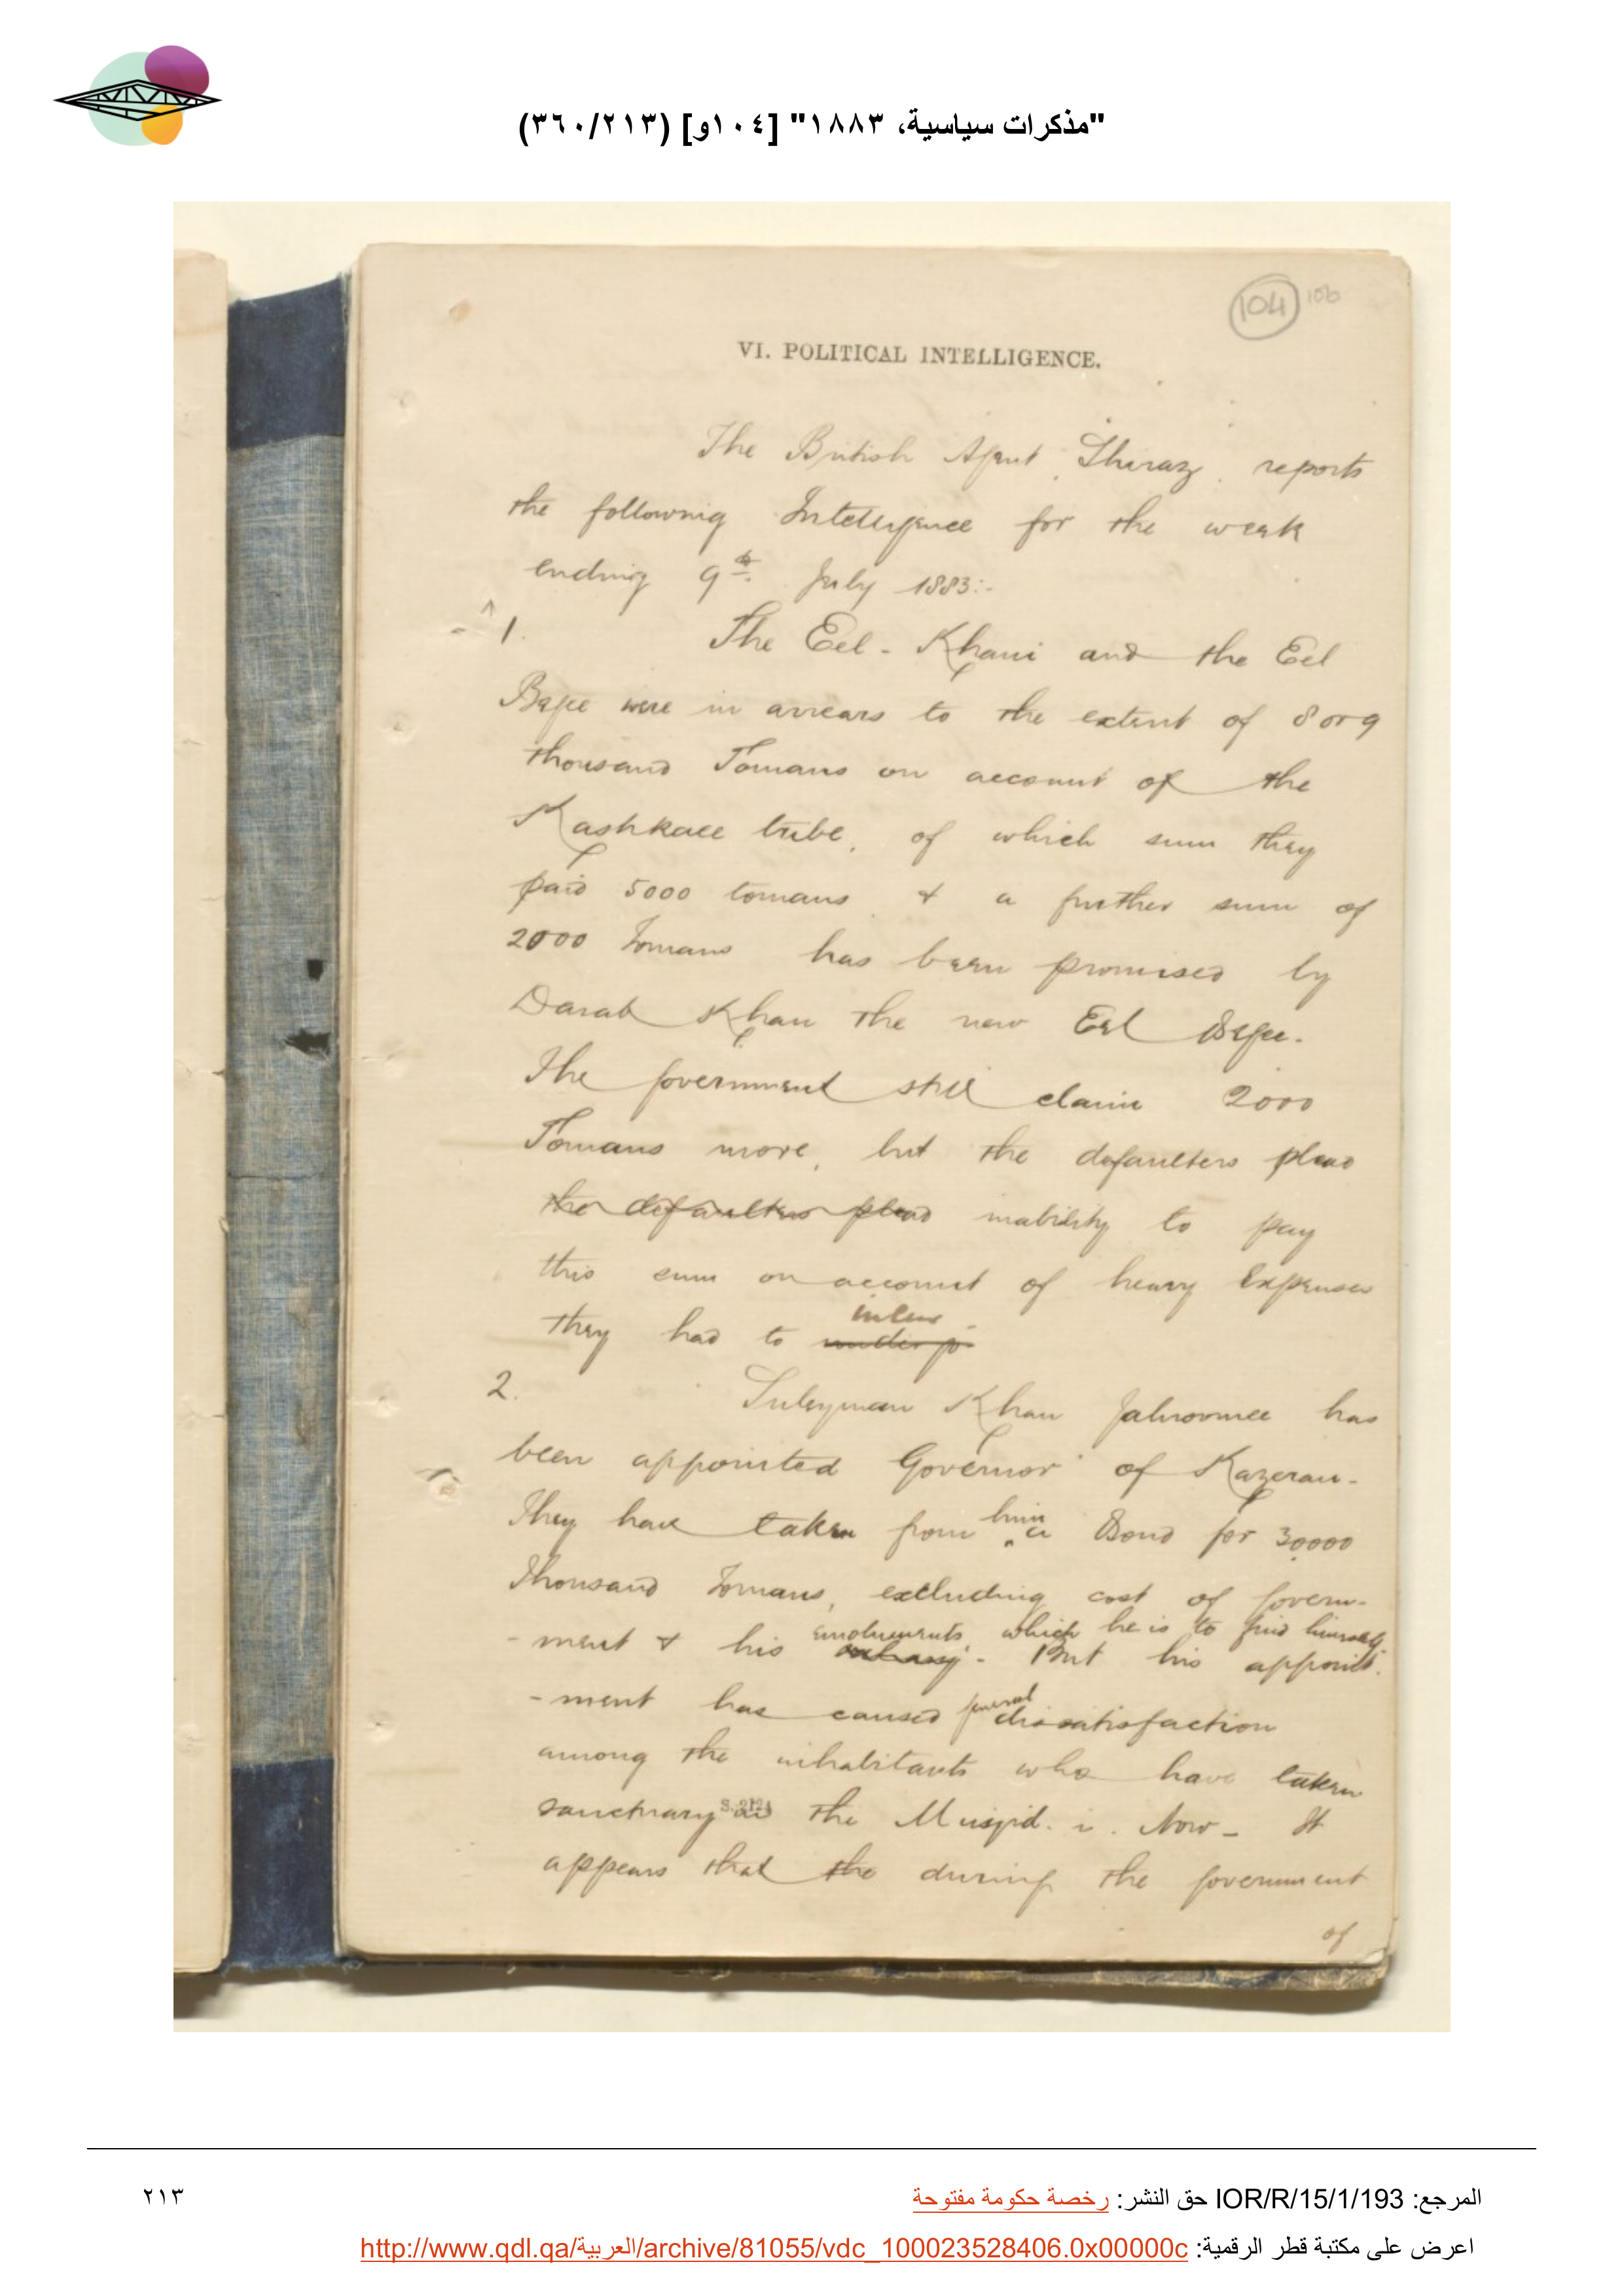 "مذكرات سياسية، ١٨٨٣" [١٠٤و] (٣٦٠/٢١٣)
104
106
VI. POLITICAL INTELLIGENCE.
The British Agent, Shiraz, reports
the following Intelligence for the week
ending 9th July 1883:-
1. The Eel-Khani and the Eel
Begee were in arrears to the extent of 8 or 9
thousand Tomans on account of the
Kashkaee tribe, of which sum they
paid 5000 tomans & a further sum of
2000 Tomans has been promised by
Darab Khan the new Eel Begee.
The Government still claim 2000
Tomans more, but the defaulters plead
the defaulters plead inability to pay
this sum on account of heavy Expenses
incur
they had to undergo
2. Suleyman Khan Jahroomee has
been appointed Governor of Kazeran-
They have taken from him a Bond for 30000
Thousand Tomans, excluding cost of Govern-
-ment & his emoluments which he is to find himself. But his appoint-
-ment has caused general dissatisfaction
among the inhabitants who have taken
sanctuary in the Musjid. i. Now- It
appears that the during the Government
of
المرجع: IOR/R/15/1/193 حق النشر: رخصة حكومة مفتوحة
٢١٣
اعرض على مكتبة قطر الرقمية: http://www.qdl.qa/العربية/archive/81055/vdc_100023528406.0x00000c